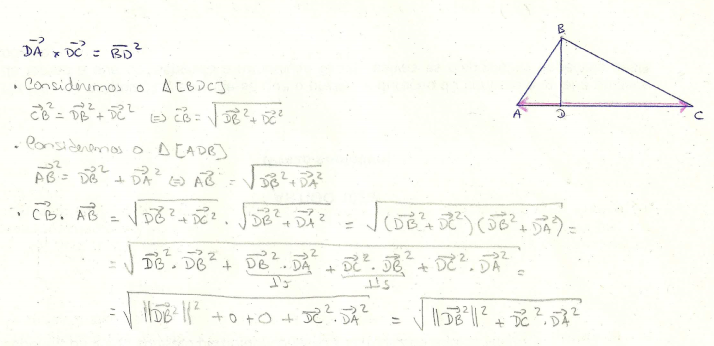 DA⃗ × DC⃗ = B̅D̅²
B
A D C
. Consideremos o Δ[BDC]
CB⃗² = DB⃗² + DC⃗² ⇔ CB⃗ = √(DB⃗² + DC⃗²)
. Consideremos o Δ[ADB]
AB⃗² = DB⃗² + DA⃗² ⇔ AB⃗ = √(DB⃗² + DA⃗²)
. CB⃗ . AB⃗ = √(DB⃗² + DC⃗²) . √(DB⃗² + DA⃗²) = √((DB⃗² + DC⃗²)(DB⃗² + DA⃗²)) =
= √(DB⃗² . DB⃗² + DB⃗² . DA⃗² + DC⃗² . DB⃗² + DC⃗² . DA⃗²) =
⊥'s ⊥'s
= √(||DB⃗²||² + 0 + 0 + DC⃗² . DA⃗²) = √(||DB⃗²||² + DC⃗² . DA⃗²)